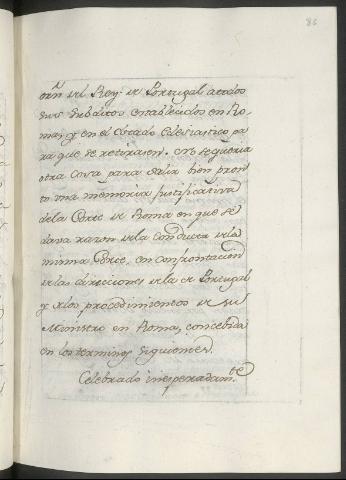 86
orn del Rey de Portugal a todos
sus Subditos establecidos en Ro-
ma, y en el Estado Eclesiastico pa
ra que se retirasen. No se queria
otra cosa para salir bien pron
to una memoria justificativa
de la Corte de Roma en que se
dava razon de la conducta de la
misma Corte, en confrontacion
de las direcciones de la de Portugal
y de los procedimientos de su
Ministro en Roma, concebida
en los terminos siguientes.
Celebrado inesperadamte